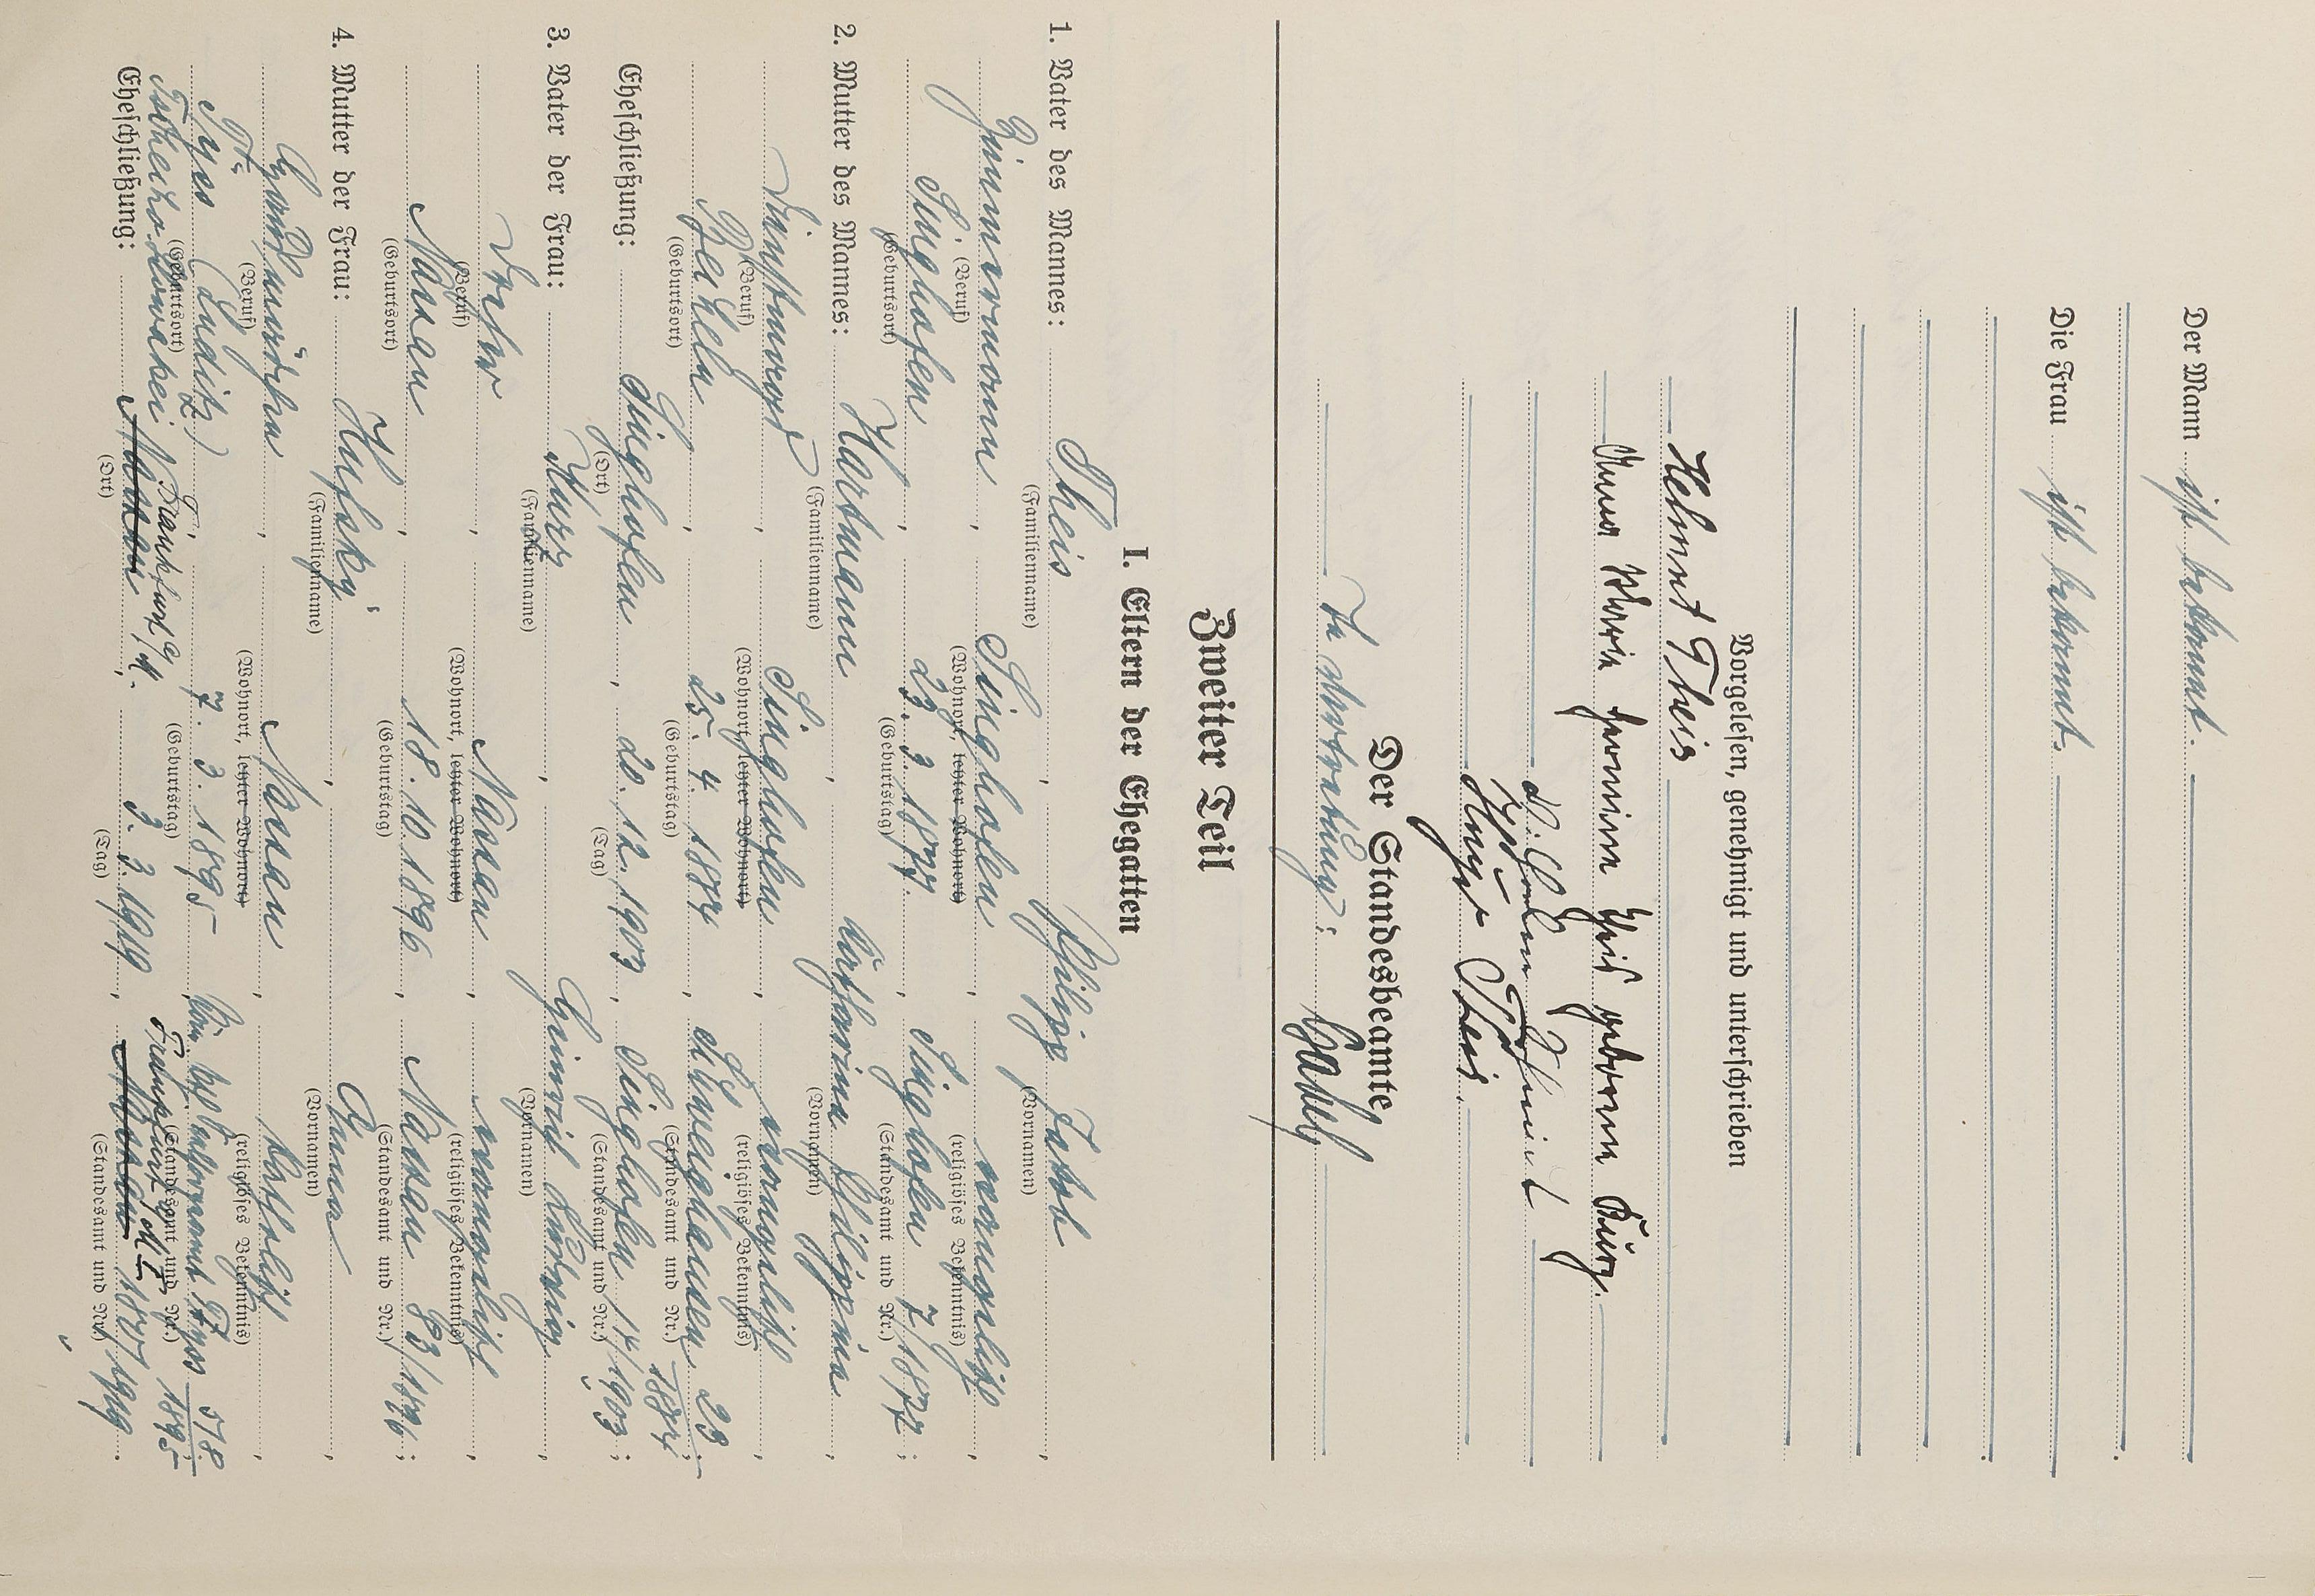 Der Mann ist bekannt.
Die Frau ist bekannt.
Vorgelesen, genehmigt und unterschrieben
Helmut Theis
Anna Maria Theis geborene Kurz.
Wilhelm
Theis.
Der Standesbeamte
In Vertretung:
Zweiter Teil
I. Eltern der Ehegatten
1. Vater des Mannes: Theis, Philipp Jakob,
(Familienname) (Vornamen)
Zimmermann, Singhofen, evangelisch,
(Beruf) (Wohnort, letzter Wohnort) (religiöses Bekenntnis)
Singhofen, 23. 3. 1877, Singhofen 7/1877;
(Geburtsort) (Geburtstag) (Standesamt und Nr.)
2. Mutter des Mannes: Hartmann, Katharina Philippina,
(Familienname) (Vornamen)
Singhofen, evangelisch,
(Beruf) (Wohnort, letzter Wohnort) (religiöses Bekenntnis)
Becheln, 25. 4. 1884, 23/1884;
(Geburtsort) (Geburtstag) (Standesamt und Nr.)
Eheschließung: Singhofen, 20. 12. 1903, Singhofen 14/1903;
(Ort) (Tag) (Standesamt und Nr.)
3. Vater der Frau: Kurz, Heinrich Ludwig,
(Familienname) (Vornamen)
Nassau, evangelisch,
(Beruf) (Wohnort, letzter Wohnort) (religiöses Bekenntnis)
Nassau, 18. 10. 1896, Nassau 83/1896;
(Geburtsort) (Geburtstag) (Standesamt und Nr.)
4. Mutter der Frau: Anna,
(Familienname) (Vornamen)
Nassau, katholisch,
(Beruf) (Wohnort, letzter Wohnort) (religiöses Bekenntnis)
(Luditz) 7. 3. 1895 578/1895
(Geburtsort) (Geburtstag) (Standesamt und Nr.)
Tschechoslowakei Frankfurt a/M. Frankfurt
Eheschließung: Nassau, 3. 3. 1919, Nassau 187/1919.
(Ort) (Tag) (Standesamt und Nr.)